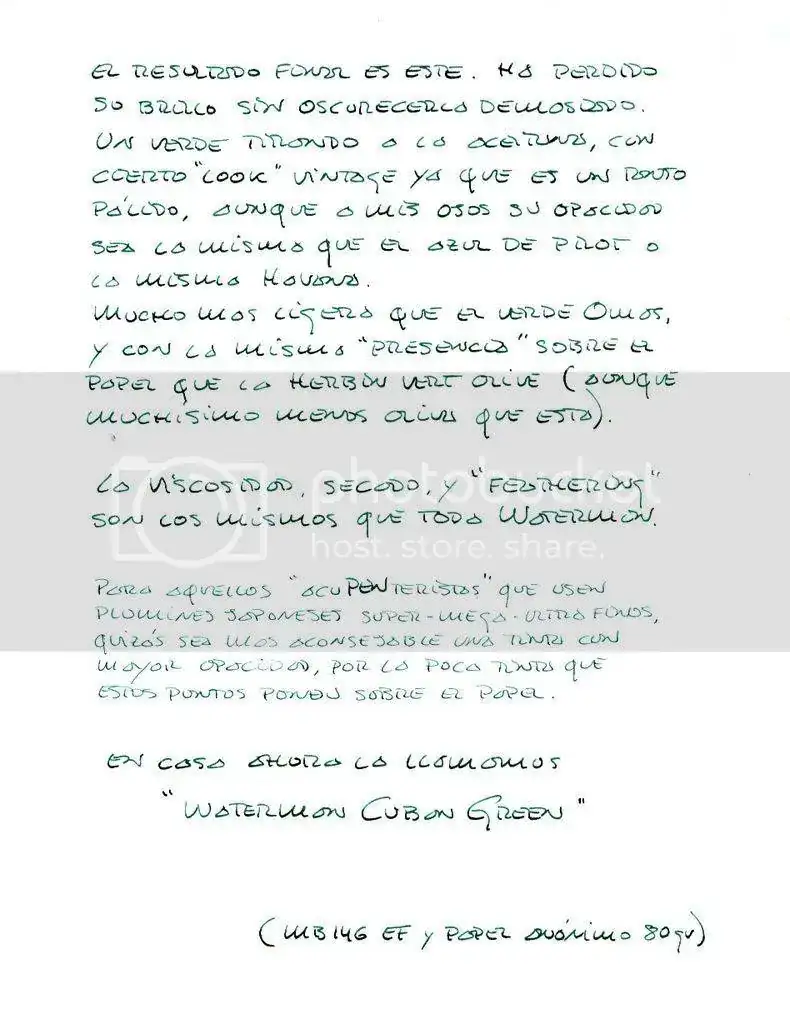 EL RESULTADO FINAL ES ESTE. HA PERDIDO
SU BRILLO SIN OSCURECERLA DEMASIADO.
UN VERDE TIRANDO A LA ACEITUNA, CON
CIERTO "LOOK" VINTAGE YA QUE ES UN TONO
PÁLIDO, AUNQUE A MIS OJOS SU OPACIDAD
SEA LA MISMA QUE EL AZUL DE PILOT O
LA MISMA HAVANA.
MUCHO MAS LIGERA QUE EL VERDE OMAS,
Y CON LA MISMA "PRESENCIA" SOBRE EL
PAPEL QUE LA HERBIN VERT OLIVE (AUNQUE
MUCHISIMO MENOS OLIVA QUE ESTA).
photobucket
LA VISCOSIDAD, SECADO, Y "FEATHERING"
SON LOS MISMOS QUE TODA WATERMAN.
host. store. share.
PARA AQUELLOS "ACUPENTERISTAS" QUE USEN
PLUMINES JAPONESES SUPER-MEGA-ULTRA FINOS,
QUIZÁS SEA MAS ACONSEJABLE UNA TINTA CON
MAYOR OPACIDAD, POR LA POCA TINTA QUE
ESTOS PUNTOS PONEN SOBRE EL PAPEL.
EN CASA AHORA LA LLAMAMOS
"WATERMAN CUBAN GREEN"
(MB146 EF Y PAPEL ANÓNIMO 80gr)